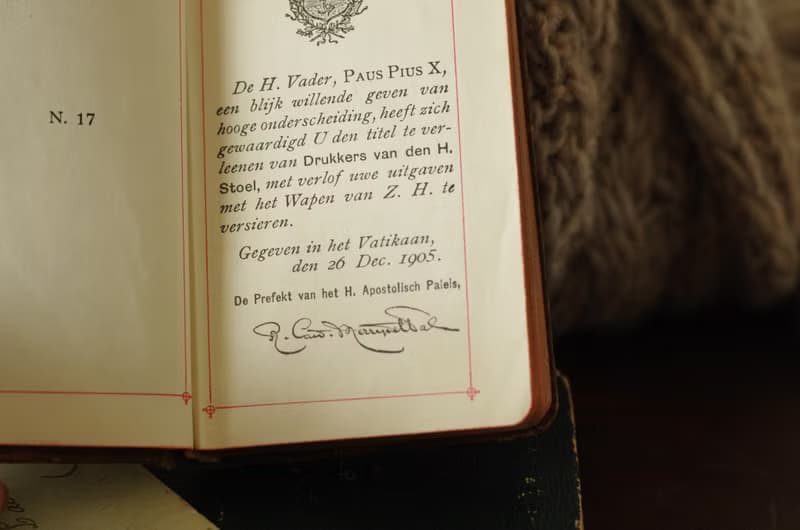 N. 17
De H. Vader, PAUS PIUS X,
een blijk willende geven van
hooge onderscheiding, heeft zich
gewaardigd U den titel te ver-
leenen van Drukkers van den H.
Stoel, met verlof uwe uitgaven
met het Wapen van Z. H. te
versieren.
Gegeven in het Vatikaan,
den 26 Dec. 1905.
De Prefekt van het H. Apostolisch Paleis,
R. Card. Merry del Val